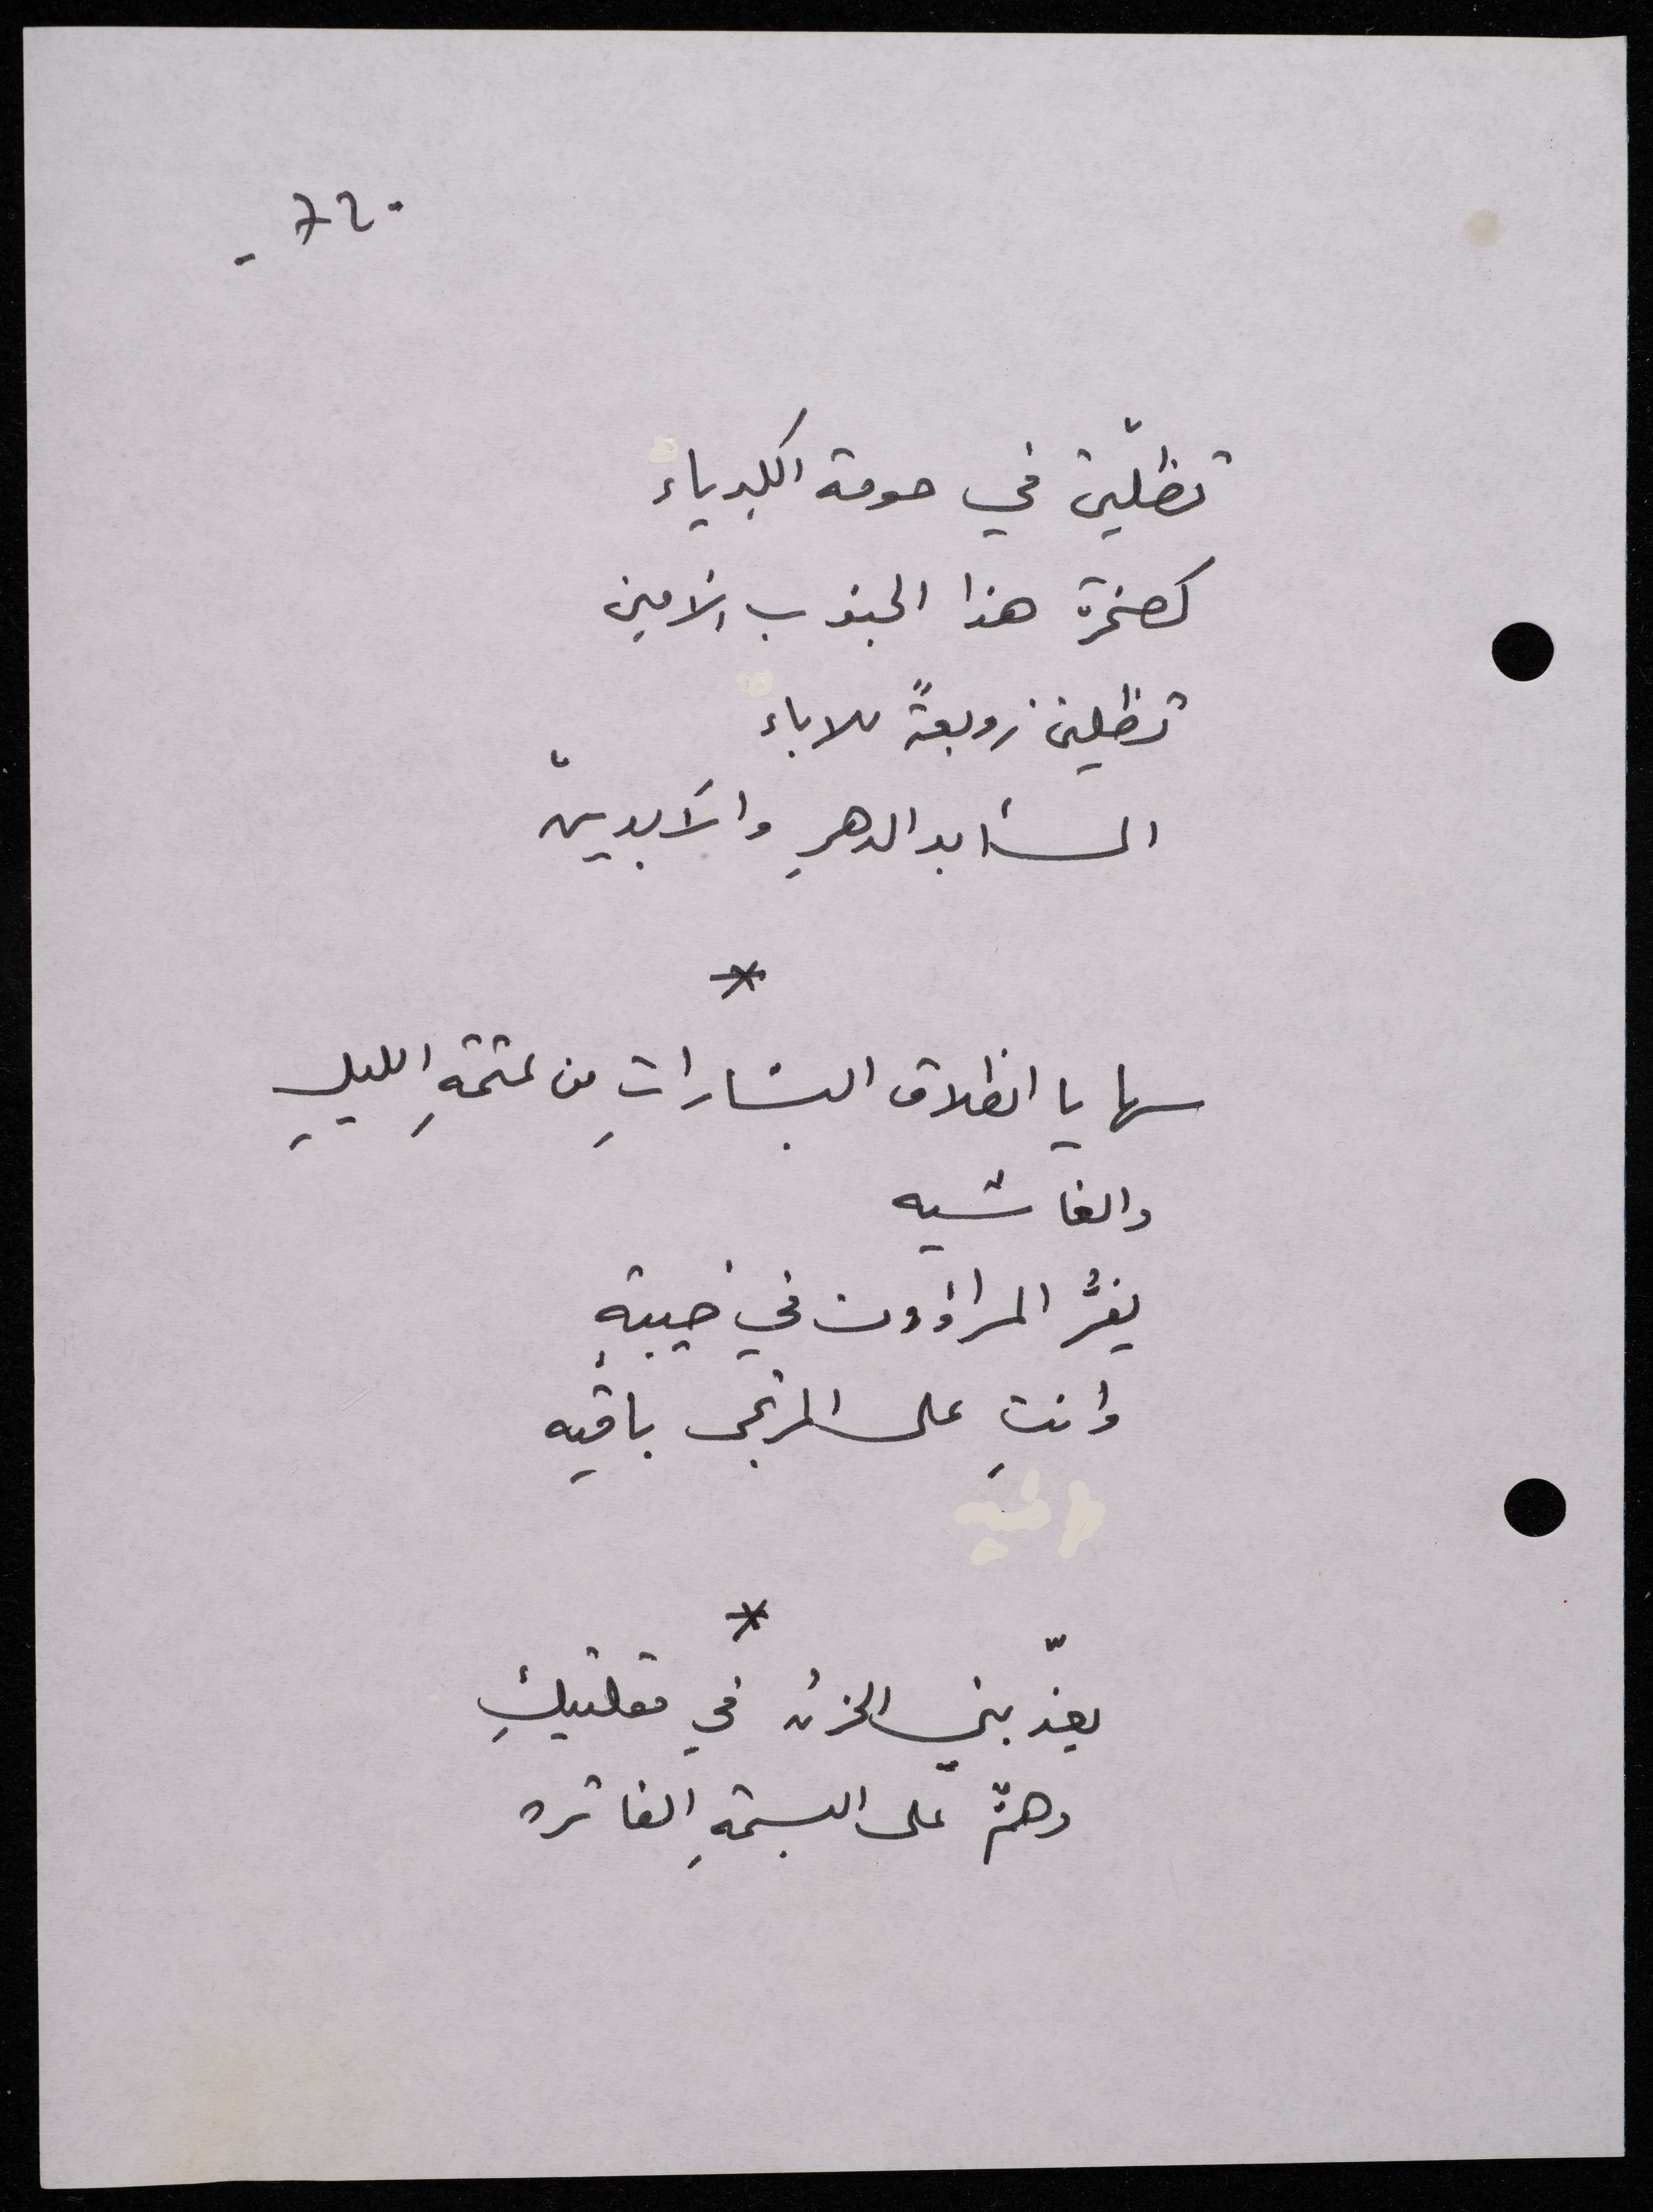 - 72.
تظلّين في حومة الكبرياء
كصخرة هذا الجنوب الامين
تظلين زوبعةً للاباء
الى ابد الدهرِ والآبدينْ
*
سها يا انطلاق البشاراتِ من عتمةِ الليلِ
والغاشيه
يفرُّ المراؤون في خيبةٍ
وانتِ على المرتجى باقيه
*
يعذّبني الحزنُ في مقلتيكِ
وهمٌّ على البسمةِ الفاتره